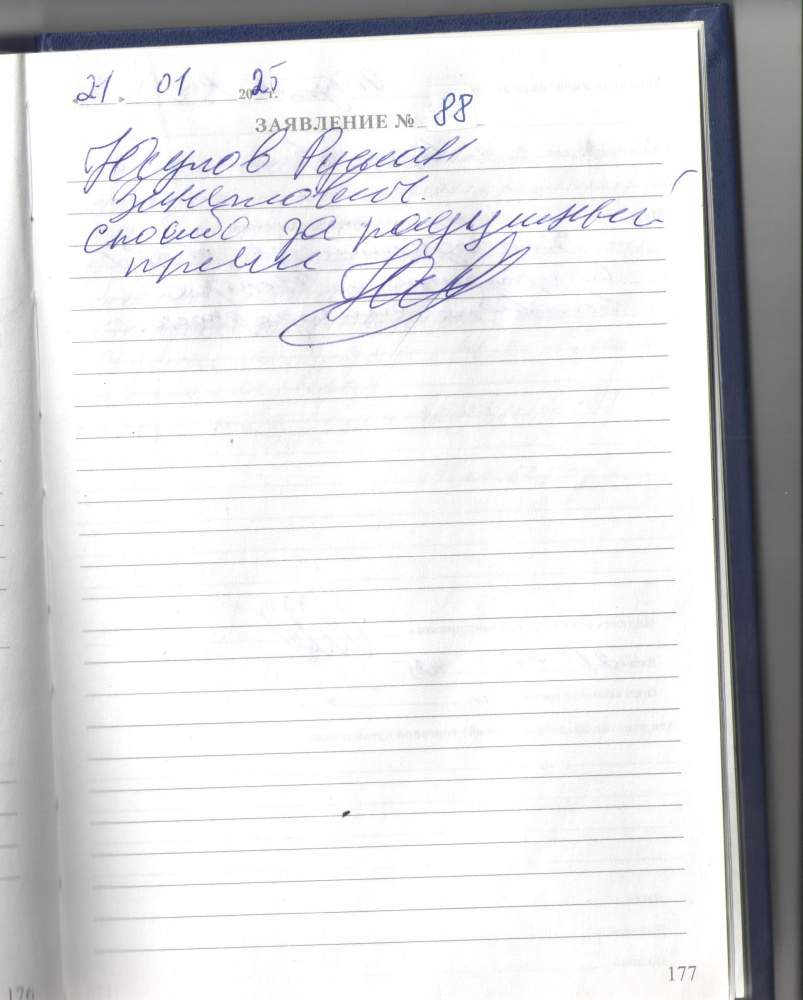 «21» 01 2025 г.
ЗАЯВЛЕНИЕ № 88
Юсупов Руслан
спосибо за радушный
прием
177
176